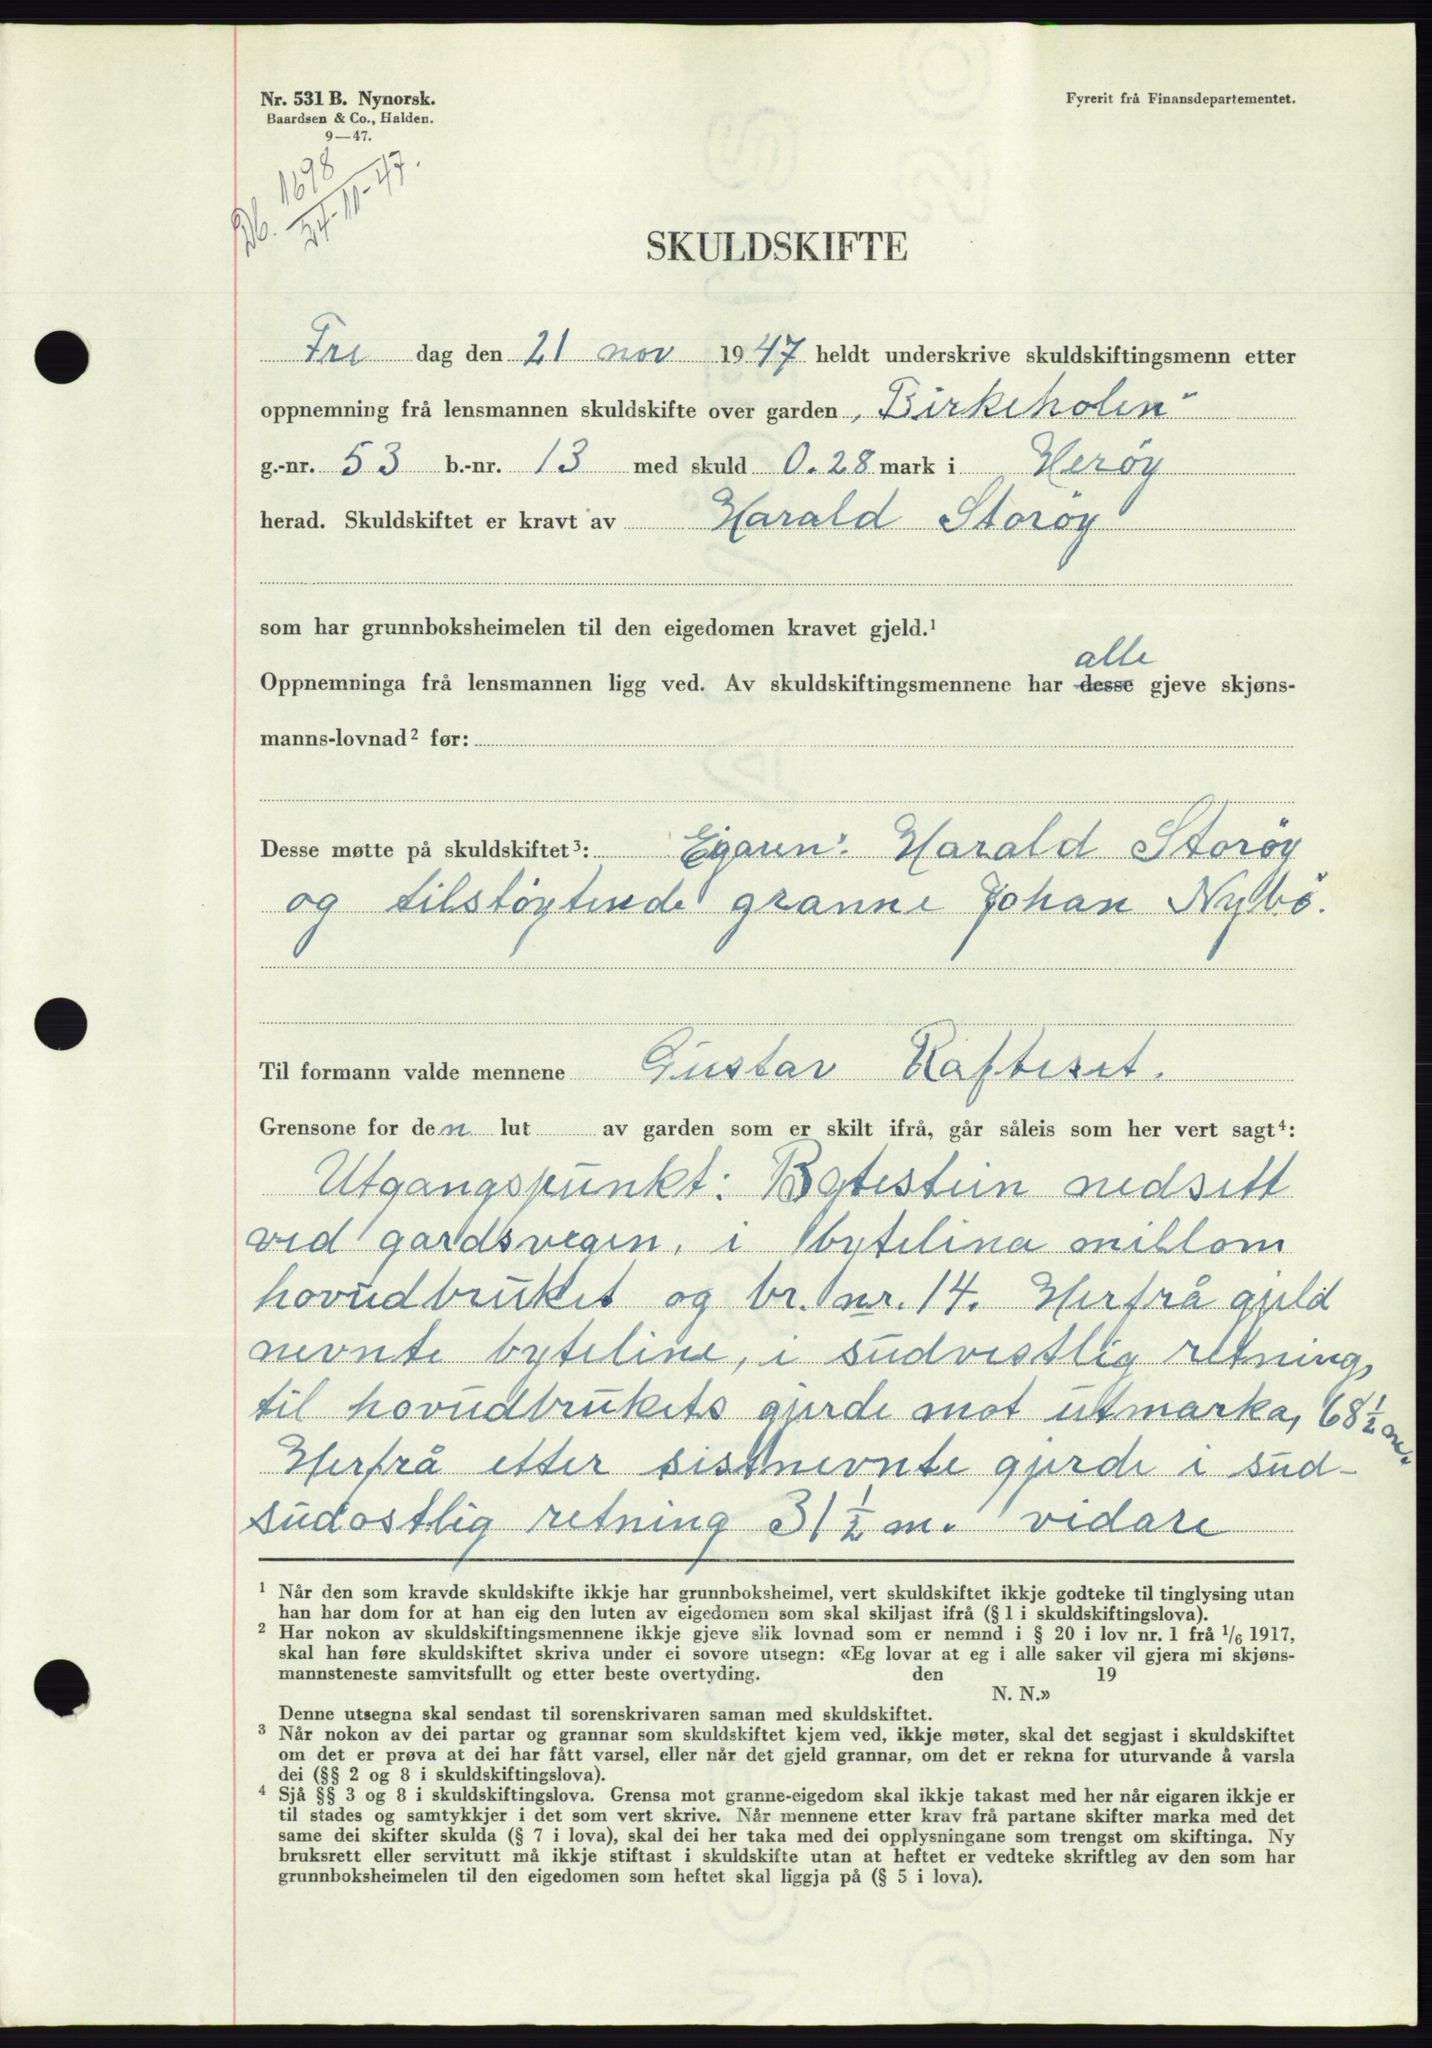 Nr. 531 B. Nynorsk.
Baardsen & Co., Halden.
9—47.
Fyrerit frå Finansdepartementet.
Db. 1698
24-11-47.
SKULDSKIFTE
Fre dag den 21 nov 1947 heldt underskrive skuldskiftingsmenn etter
oppnemning frå lensmannen skuldskifte over garden „Birkeholen“
g.-nr. 53 b.-nr. 13 med skuld 0.28 mark i Herøy
herad. Skuldskiftet er kravt av Harald Storøy
som har grunnboksheimelen til den eigedomen kravet gjeld.¹
alle
Oppnemninga frå lensmannen ligg ved. Av skuldskiftingsmennene har desse gjeve skjøns-
manns-lovnad² før:
Desse møtte på skuldskiftet³: Eigaren: Harald Storøy
og tilstøytende granne Johan Nybø.
Til formann valde mennene Gustav Rafteset.
Grensone for den lut av garden som er skilt ifrå, går såleis som her vert sagt⁴:
Utgangspunkt: Bytestein nedsett
ved gardsvegen, i bytelina millom
hovudbruket og br. nr. 14. Herfrå gjeld
nevnte byteline, i sudvestlig retning,
til hovudbrukets gjerde mot utmarka, 68 ½ m.
Herfrå etter sistnevnte gjerde i sud-
sudostlig retning 31 ½ m. vidare
¹ Når den som kravde skuldskifte ikkje har grunnboksheimel, vert skuldskiftet ikkje godteke til tinglysing utan
han har dom for at han eig den luten av eigedomen som skal skiljast ifrå (§ 1 i skuldskiftingslova).
² Har nokon av skuldskiftingsmennene ikkje gjeve slik lovnad som er nemnd i § 20 i lov nr. 1 frå 1/6 1917,
skal han føre skuldskiftet skriva under ei sovore utsegn: «Eg lovar at eg i alle saker vil gjera mi skjøns-
mannsteneste samvitsfullt og etter beste overtyding. den 19
N. N.»
Denne utsegna skal sendast til sorenskrivaren saman med skuldskiftet.
³ Når nokon av dei partar og grannar som skuldskiftet kjem ved, ikkje møter, skal det segjast i skuldskiftet
om det er prøva at dei har fått varsel, eller når det gjeld grannar, om det er rekna for uturvande å varsla
dei (§§ 2 og 8 i skuldskiftingslova).
⁴ Sjå §§ 3 og 8 i skuldskiftingslova. Grensa mot granne-eigedom skal ikkje takast med her når eigaren ikkje er
til stades og samtykkjer i det som vert skrive. Når mennene etter krav frå partane skifter marka med det
same dei skifter skulda (§ 7 i lova), skal dei her taka med dei opplysningane som trengst om skiftinga. Ny
bruksrett eller servitutt må ikkje stiftast i skuldskifte utan at heftet er vedteke skriftleg av den som har
grunnboksheimelen til den eigedomen som heftet skal liggja på (§ 5 i lova).